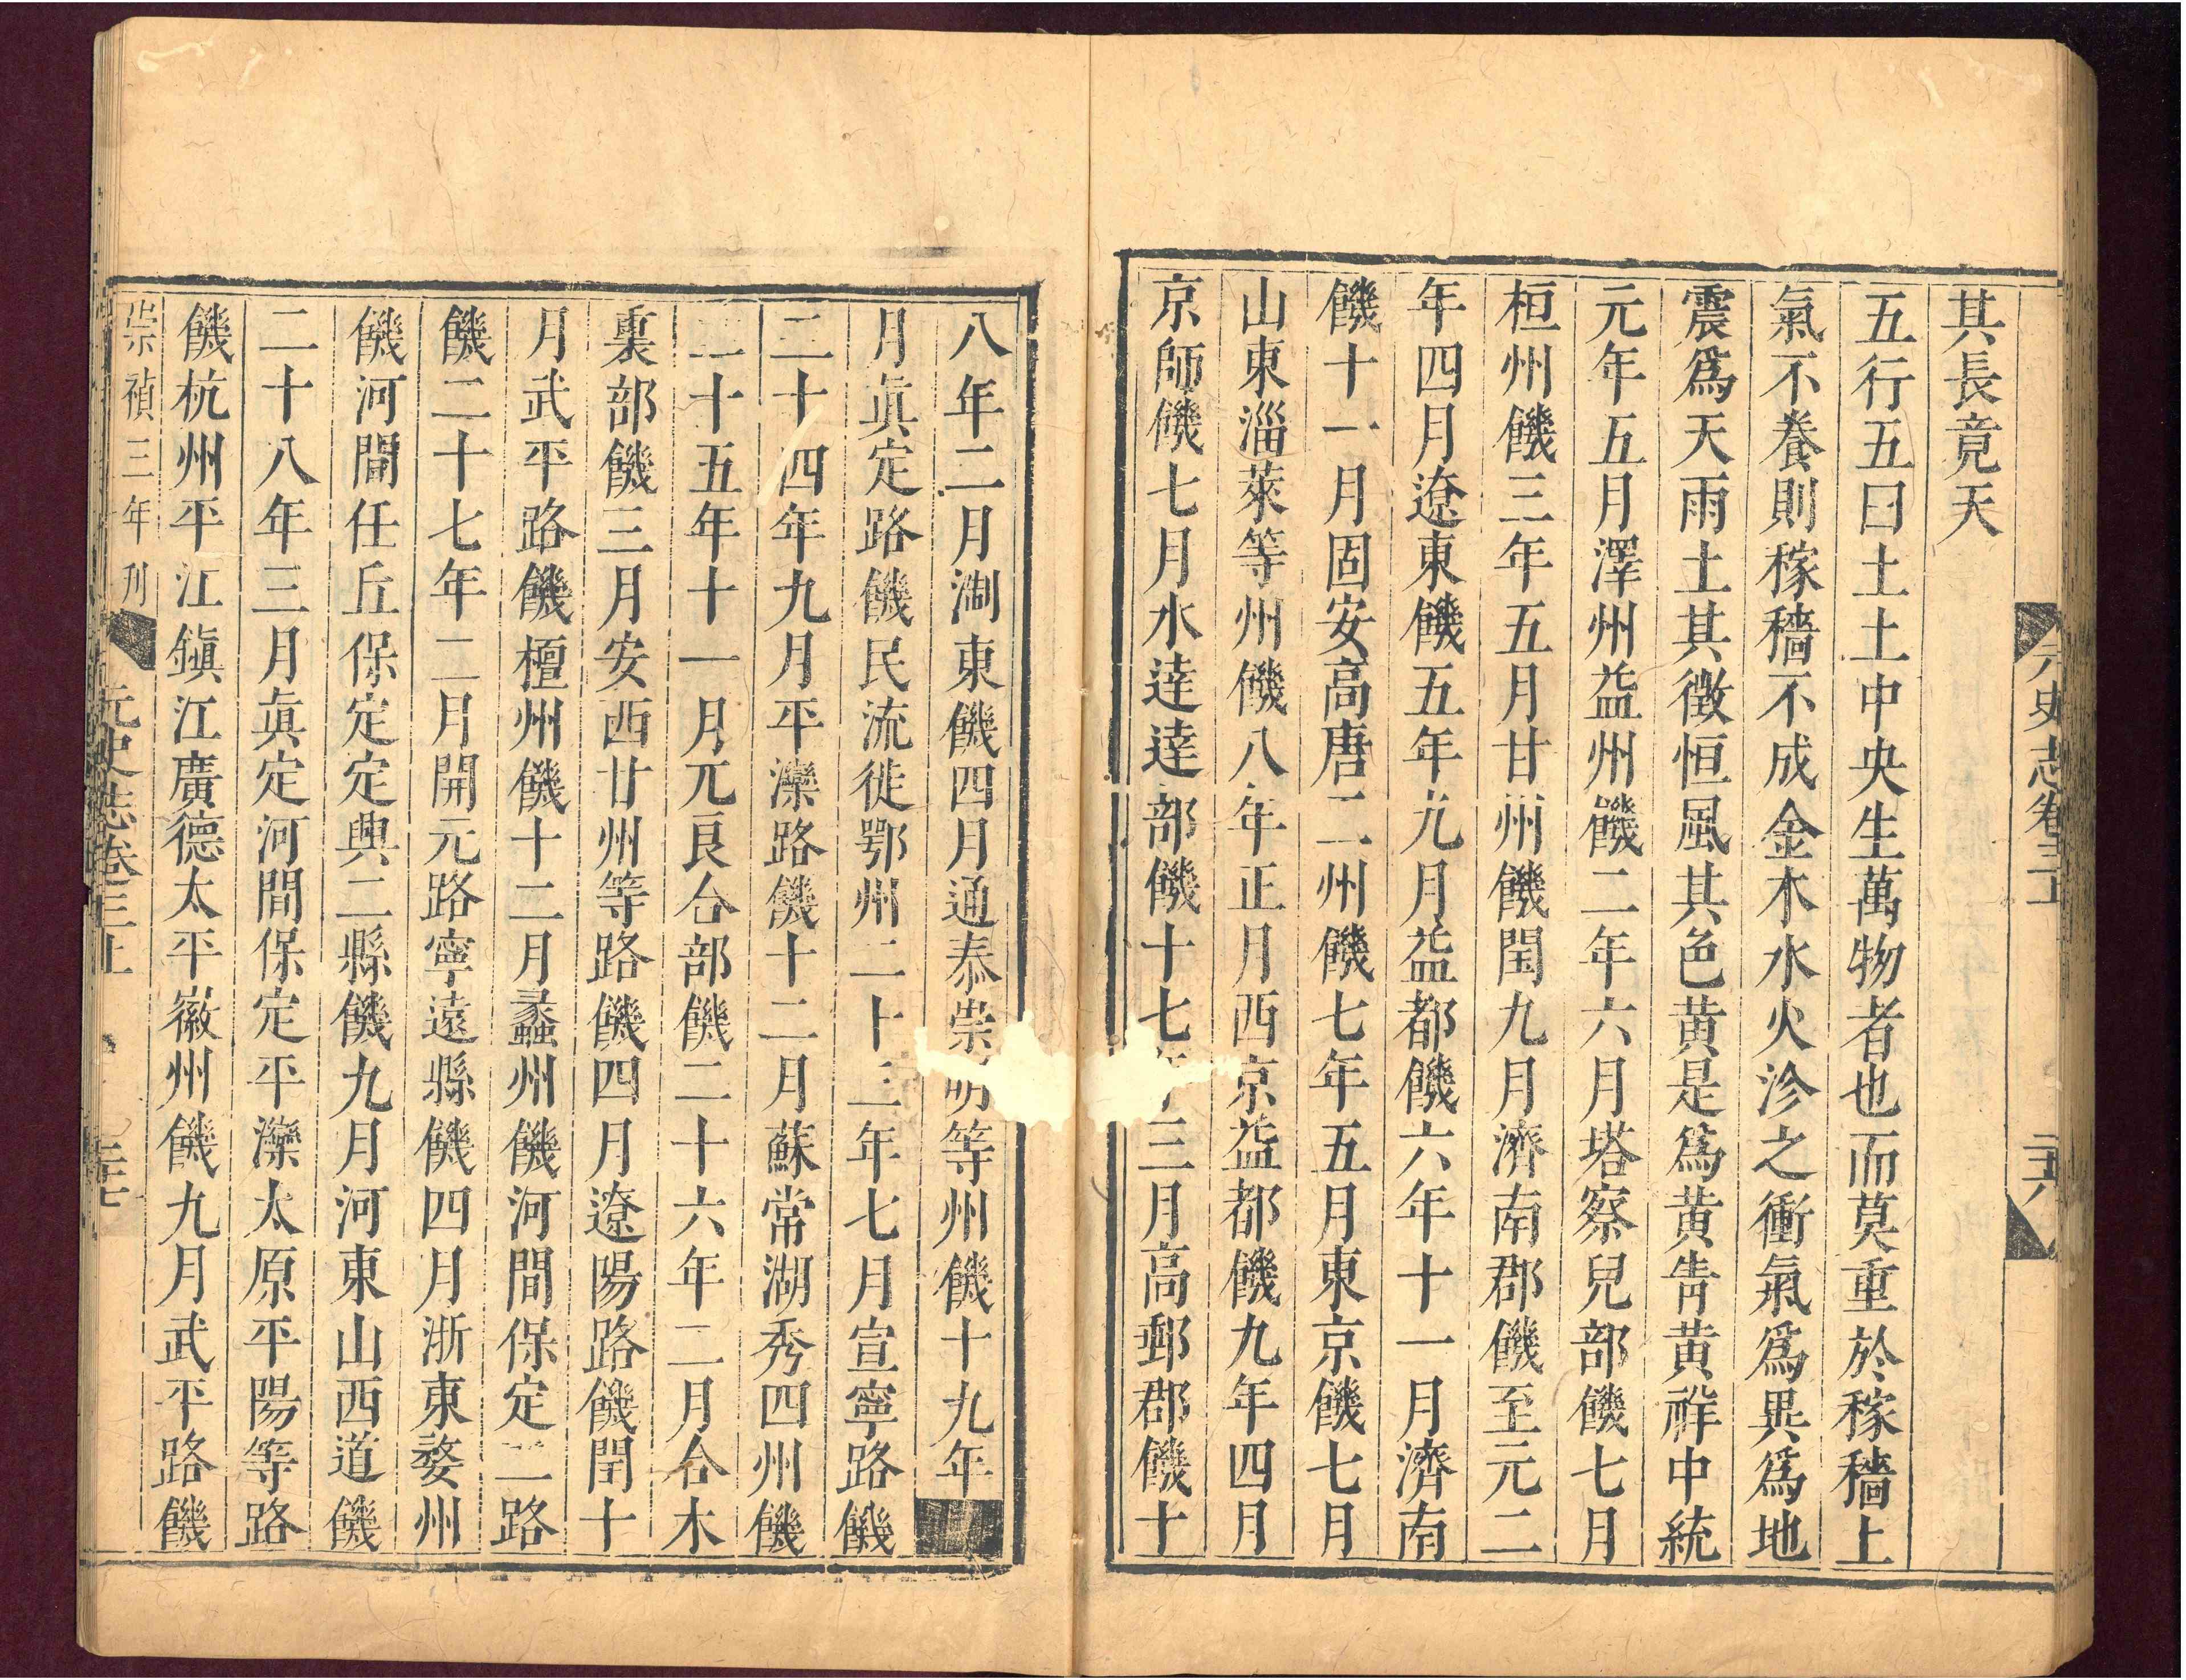 元史志卷三上
二十六
其長竟天
五行五曰土土中央生萬物者也而莫重於稼穡土
氣不養則稼穡不成金木水火沴之衝氣爲異爲地
震爲天雨土其徵恒風其色黄是爲黄眚黄祥中統
元年五月澤州益州饑二年六月塔察兒部饑七月
桓州饑三年五月甘州饑閏九月濟南郡饑至元二
年四月遼東饑五年九月益都饑六年十一月濟南
饑十一月固安高唐二州饑七年五月東京饑七月
山東淄萊等州饑八年正月西京益都饑九年四月
京師饑七月水達達部饑十七三月高郵郡饑十
八年二月淛東饑四月通泰崇等州饑十九年
月眞定路饑民流徙鄂州二十三年七月宣寧路饑
二十四年九月平灤路饑十二月蘇常湖秀四州饑
二十五年十一月兀良合部饑二十六年二月合木
裏部饑三月安西甘州等路饑四月遼陽路饑閏十
月武平路饑檀州饑十二月蠡州饑河間保定二路
饑二十七年二月開元路寧遠縣饑四月浙東婺州
饑河間任丘保定定興二縣饑九月河東山西道饑
二十八年三月眞定河間保定平灤太原平陽等路
饑杭州平江鎭江廣德太平徽州饑九月武平路饑
崇禎三年刊
元史志卷三上
二十七